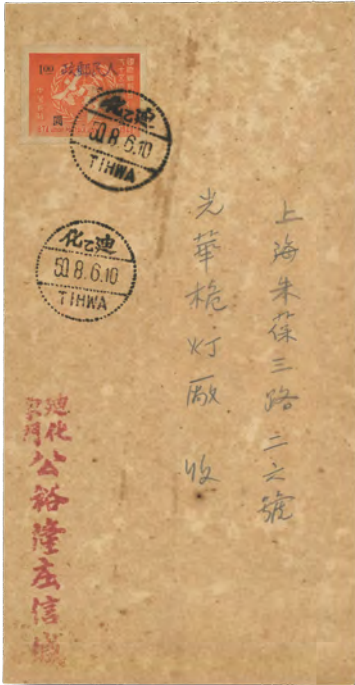 人民郵政
1.00
迪乙化
50.8.6.10
TIHWA
迪乙化
50.8.6.10
TIHWA
上海朱葆三路二六號
光華桅灯厰 收
迪化
公裕隆庄信缄